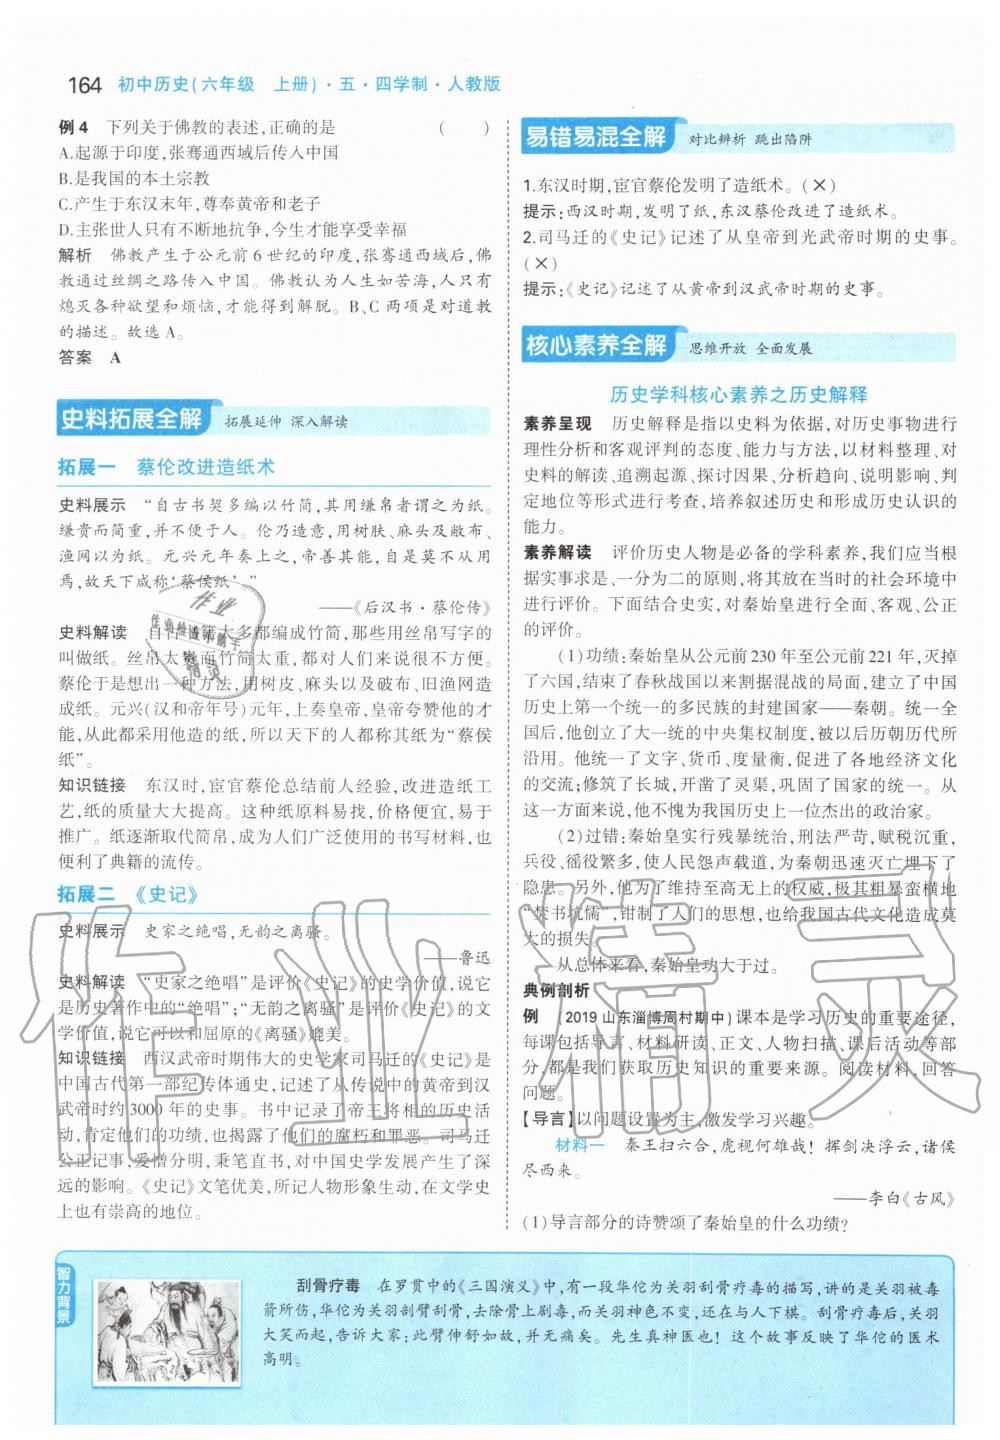 164 初中历史(六年级 上册)·五·四学制·人教版
例4 下列关于佛教的表述,正确的是 ( )
A.起源于印度,张骞通西域后传入中国
B.是我国的本土宗教
C.产生于东汉末年,尊奉黄帝和老子
D.主张世人只有不断地抗争,今生才能享受幸福
解析 佛教产生于公元前6世纪的印度,张骞通西域后,佛
教通过丝绸之路传入中国。佛教认为人生如苦海,人只有
熄灭各种欲望和烦恼,才能得到解脱。B、C两项是对道教
的描述。故选A。
答案 A
史料拓展全解 拓展延伸 深入解读
拓展一 蔡伦改进造纸术
史料展示 “自古书契多编以竹简,其用缣帛者谓之为纸。
缣贵而简重,并不便于人。伦乃造意,用树肤、麻头及敝布、
渔网以为纸。元兴元年奏上之,帝善其能,自是莫不从用
焉,故天下咸称‘蔡侯纸’。”
——《后汉书·蔡伦传》
史料解读 自古书籍大多都编成竹简,那些用丝帛写字的
叫做纸。丝帛太贵而竹简太重,都对人们来说很不方便。
蔡伦于是想出一种方法,用树皮、麻头以及破布、旧渔网造
成纸。元兴(汉和帝年号)元年,上奏皇帝,皇帝夸赞他的才
能,从此都采用他造的纸,所以天下的人都称其纸为“蔡侯
纸”。
知识链接 东汉时,宦官蔡伦总结前人经验,改进造纸工
艺,纸的质量大大提高。这种纸原料易找,价格便宜,易于
推广。纸逐渐取代简帛,成为人们广泛使用的书写材料,也
便利了典籍的流传。
拓展二 《史记》
史料展示 史家之绝唱,无韵之离骚。
——鲁迅
史料解读 “史家之绝唱”是评价《史记》的史学价值,说它
是历史著作中的“绝唱”;“无韵之离骚”是评价《史记》的文
学价值,说它可以和屈原的《离骚》媲美。
知识链接 西汉武帝时期伟大的史学家司马迁的《史记》是
中国古代第一部纪传体通史,记述了从传说中的黄帝到汉
武帝时约3000年的史事。书中记录了帝王将相的历史活
动,肯定他们的功绩,也揭露了他们的腐朽和罪恶。司马迁
公正记事,爱憎分明,秉笔直书,对中国史学发展产生了深
远的影响。《史记》文笔优美,所记人物形象生动,在文学史
上也有崇高的地位。
易错易混全解 对比辨析 跳出陷阱
1.东汉时期,宦官蔡伦发明了造纸术。(×)
提示:西汉时期,发明了纸,东汉蔡伦改进了造纸术。
2.司马迁的《史记》记述了从皇帝到光武帝时期的史事。
(×)
提示:《史记》记述了从黄帝到汉武帝时期的史事。
核心素养全解 思维开放 全面发展
历史学科核心素养之历史解释
素养呈现 历史解释是指以史料为依据,对历史事物进行
理性分析和客观评判的态度、能力与方法,以材料整理、对
史料的解读、追溯起源、探讨因果、分析趋向、说明影响、判
定地位等形式进行考查,培养叙述历史和形成历史认识的
能力。
素养解读 评价历史人物是必备的学科素养,我们应当根
据实事求是、一分为二的原则,将其放在当时的社会环境中
进行评价。下面结合史实,对秦始皇进行全面、客观、公正
的评价。
(1)功绩:秦始皇从公元前230年至公元前221年,灭掉
了六国,结束了春秋战国以来割据混战的局面,建立了中国
历史上第一个统一的多民族的封建国家——秦朝。统一全
国后,他创立了大一统的中央集权制度,被以后历朝历代所
沿用。他统一了文字、货币、度量衡,促进了各地经济文化
的交流;修筑了长城,开凿了灵渠,巩固了国家的统一。从
这一方面来看,他不愧为我国历史上一位杰出的政治家。
(2)过错:秦始皇实行残暴统治,刑法严苛,赋税沉重,
兵役、徭役繁多,使人民怨声载道,为秦朝迅速灭亡埋下了
隐患。另外,他为了维持至高无上的权威,极其粗暴蛮横地
“焚书坑儒”,钳制了人们的思想,也给我国古代文化造成莫
大的损失。
从总体来看,秦始皇功大于过。
典例剖析
例 (2019山东淄博周村期中)课本是学习历史的重要途径,
每课包括导言、材料研读、正文、人物扫描、课后活动等部
分,都是我们获取历史知识的重要来源。阅读材料,回答
问题。
【导言】以问题设置为主,激发学习兴趣。
材料一 秦王扫六合,虎视何雄哉!挥剑决浮云,诸侯
尽西来。
——李白《古风》
(1)导言部分的诗赞颂了秦始皇的什么功绩?
智力背景
刮骨疗毒 在罗贯中的《三国演义》中,有一段华佗为关羽刮骨疗毒的描写,讲的是关羽被毒
箭所伤,华佗为关羽剖臂刮骨,去除骨上剧毒,而关羽神色不变,还在与人下棋。刮骨疗毒后,关羽
大笑而起,告诉大家:此臂伸舒如故,并无痛矣。先生真神医也!这个故事反映了华佗的医术
高明。
作业精灵